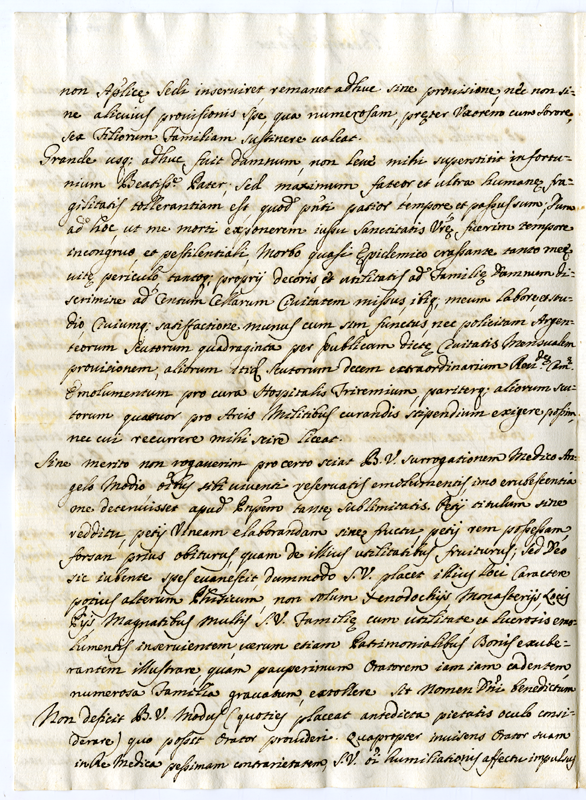 non Aplicę Sedi inserviret remanet adhuc sine provisione, nec non si-
ne alicuius provisionis spe, qua numerosam, pręter Uxorem cum Sorore,
sex Filiorum Familiam sustinere valeat.
Grande usq; adhuc fuit damnum, non leve mihi superstiti infortu-
nium Beatiss.e Pater, sed maximum fateor et ultra humanę fra-
gilitatis tollerantiam est quod pnti patior tempore et passus sum; Dum
ad hoc, ut me morti exponerem iussu Sanctitatis Vrę fuerim tempore
incongruo et pestilentiali, Morbo quasi Epidemico crassante tanto meę
vitę periculo tantoq; proprij decoris et utilitatis ad Familię damnum di-
scrimine ad Centum Cellarum Civitatem missus, ibiq; meum labore, et stu-
dio cuiusq; satisfactione munus cum sim functus nec solitam Argen-
teorum Scutorum quadraginta per publicam dictę Civitatis Mensualem
provisionem, aliorum itidem Scutorum decem extraordinarium Rev.dę Cam.ę
Emolumentum pro cura Hospitalis Triremium, pariterq; aliorum scu-
torum quatuor pro Arcis Militibus curandis stipendium exigere possim,
nec cui recurrere mihi scire liceat.
Sine merito non rogaverim pro certo sciat B. V. surrogationem Medico An-
gelo Modio oībus sibi viventi reservatis emolumentis imo erubescentia
one decrevisset apud tantę Sublimitatis. Petij titulum sine
redditu, petij Vineam elaborandam sine fructu petij rem possessam,
forsan prius obiturus, quam de illius utilitatibus fruiturus; Sed Deo
sic iubente spes evanescit dummodo S. V. placet illius loci Caractere
potius alterum Phisicum, non solum Xenodochijs Monasterijs, Locis
Pijs Magnatibus multis S. V. Familię cum utilitate et lucrosis emo-
lumentis inservientem, verum etiam Patrimonialibus Bonis exube-
rantem illustrare, quam pauperimum Oratorem iam iam cadentem,
numerosa Familia gravatum, extollere. Sit Nomen Dñi benedictum
Non deficit B. V. Modus (quoties placeat antedicta pietatis oculo consi-
derare) quo possit Orator provideri. Quapropter invisens Orator suam
in Re Medica pessimam contrarietatem, S. V. oī humiliationis affectu impulsus